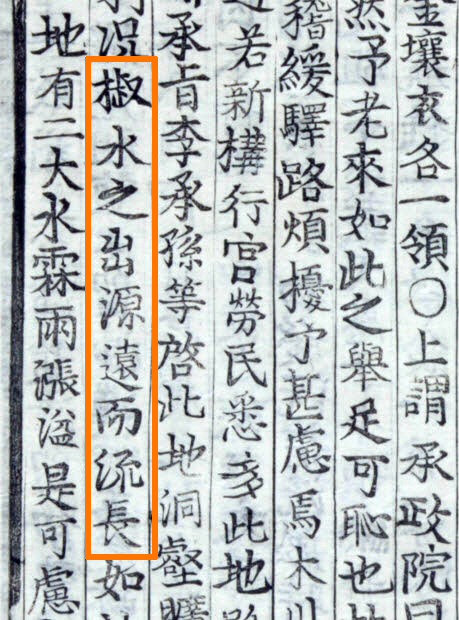 壤衣各一領○上謂承政院曰
然予老來如此之舉足可恥也
稽緩驛路煩擾予甚慮焉木川
若新構行宮勞民悉多此地
承旨李承孫等啓此地洞壑
況椒水之出源遠而流長如
地有二大水霖雨漲溢是可慮